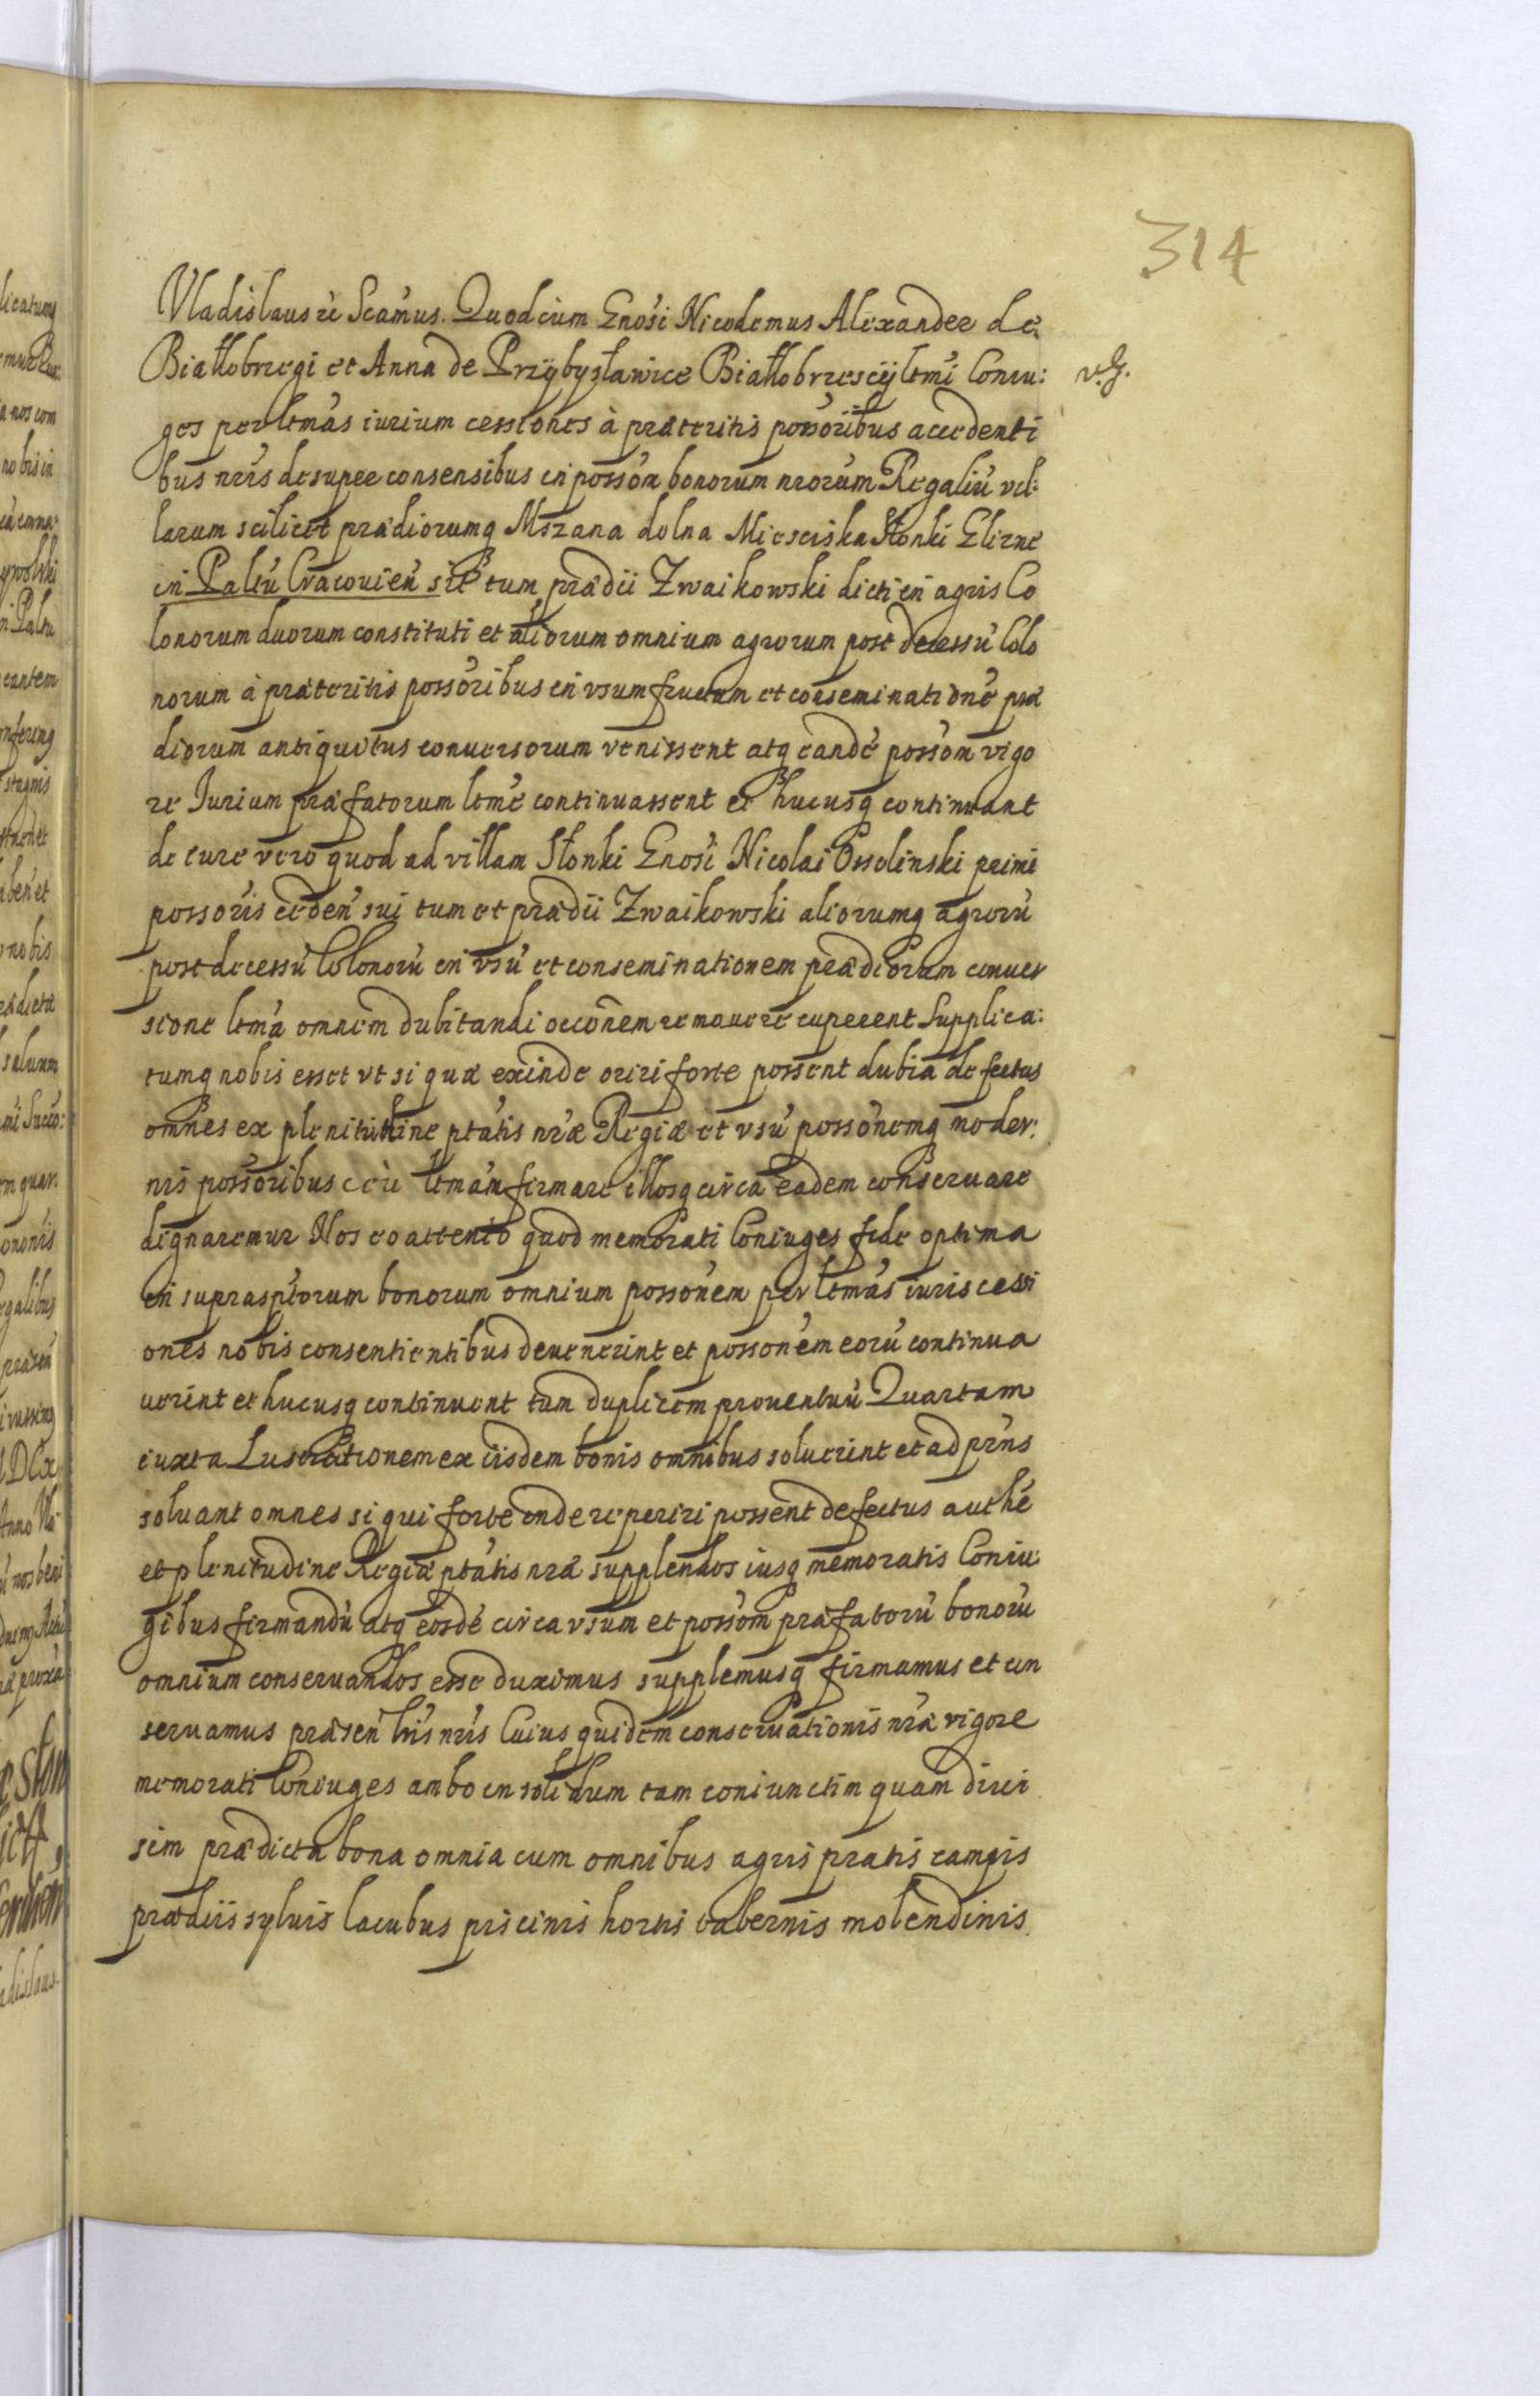 314
Vladislaus re Scamus. Quod cum Gnosi Nicodemus Alexander de
Białłobrzegi et Anna de Przÿbysławice Białłobrzescÿ ltmi Coniu:
v. G.
ges per ltmas iurium cessiones à præteritis possoribus accedenti
bus nris desuper consensibus in posson bonorum nrorum Regaliū vil:
larum scilicet prædiorumq Mszana dolna Miesciska Słonki Glizne
in Paltū Cracouien sit tum prædii Zwaikowski dicti in agris Co
lonorum duorum constituti et aliorum omnium agrorum post decessū Colo
norum à præteritis possoribus in vsum fructum et conseminationē præ
diorum antiquitus conuersorum venissent atq eandē possom vigo
re Iurium præfatorum ltme continuassent et hucusq continuant
de iure vero quod ad villam Słonki Gnosi Nicolai Ossolinski primi
possoris ceden sui tum et prædii Zwaikowski aliorumq agrorū
post decessū Colonorū in vsū et conseminationem prædiorum conuer
sione ltma omnem dubitandi occonem remouere cuperent Supplica:
tumq nobis esset vt si quæ exinde oriri forte possent dubia defectus
omnes ex plenitudine ptatis nræ Regiæ et vsū possonemq moder:
nis possoribus ltmam firmare illosq circa eadem conseruare
dignaremur Nos eo attento quod memorati Coniuges fide optima
in suprasptorum bonorum omnium possonem per ltmas iuris cessi
ones nobis consentientibus deuenerint et possonem eorū continua
uerint et hucusq continuent tum duplicem prouentuū Quartam
iuxta Lustrationem ex iisdem bonis omnibus soluerint et ad prns
soluant omnes si qui forte inde reperiri possent defectus authē
et plenitudine Regiæ ptatis nræ supplendos iusq memoratis Coniu
gibus firmandū atq eosdē circa vsum et possom præfatorū bonorū
omnium conseruandos esse duximus supplemusq firmamus et con
seruamus præsen lris nris Cuius quidem conseruationis nræ vigore
memorati Coniuges ambo in solidum tam coniunctim quam diui
sim prædicta bona omnia cum omnibus agris pratis campis
prædiis syluis lacubus piscinis hortis tabernis molendinis